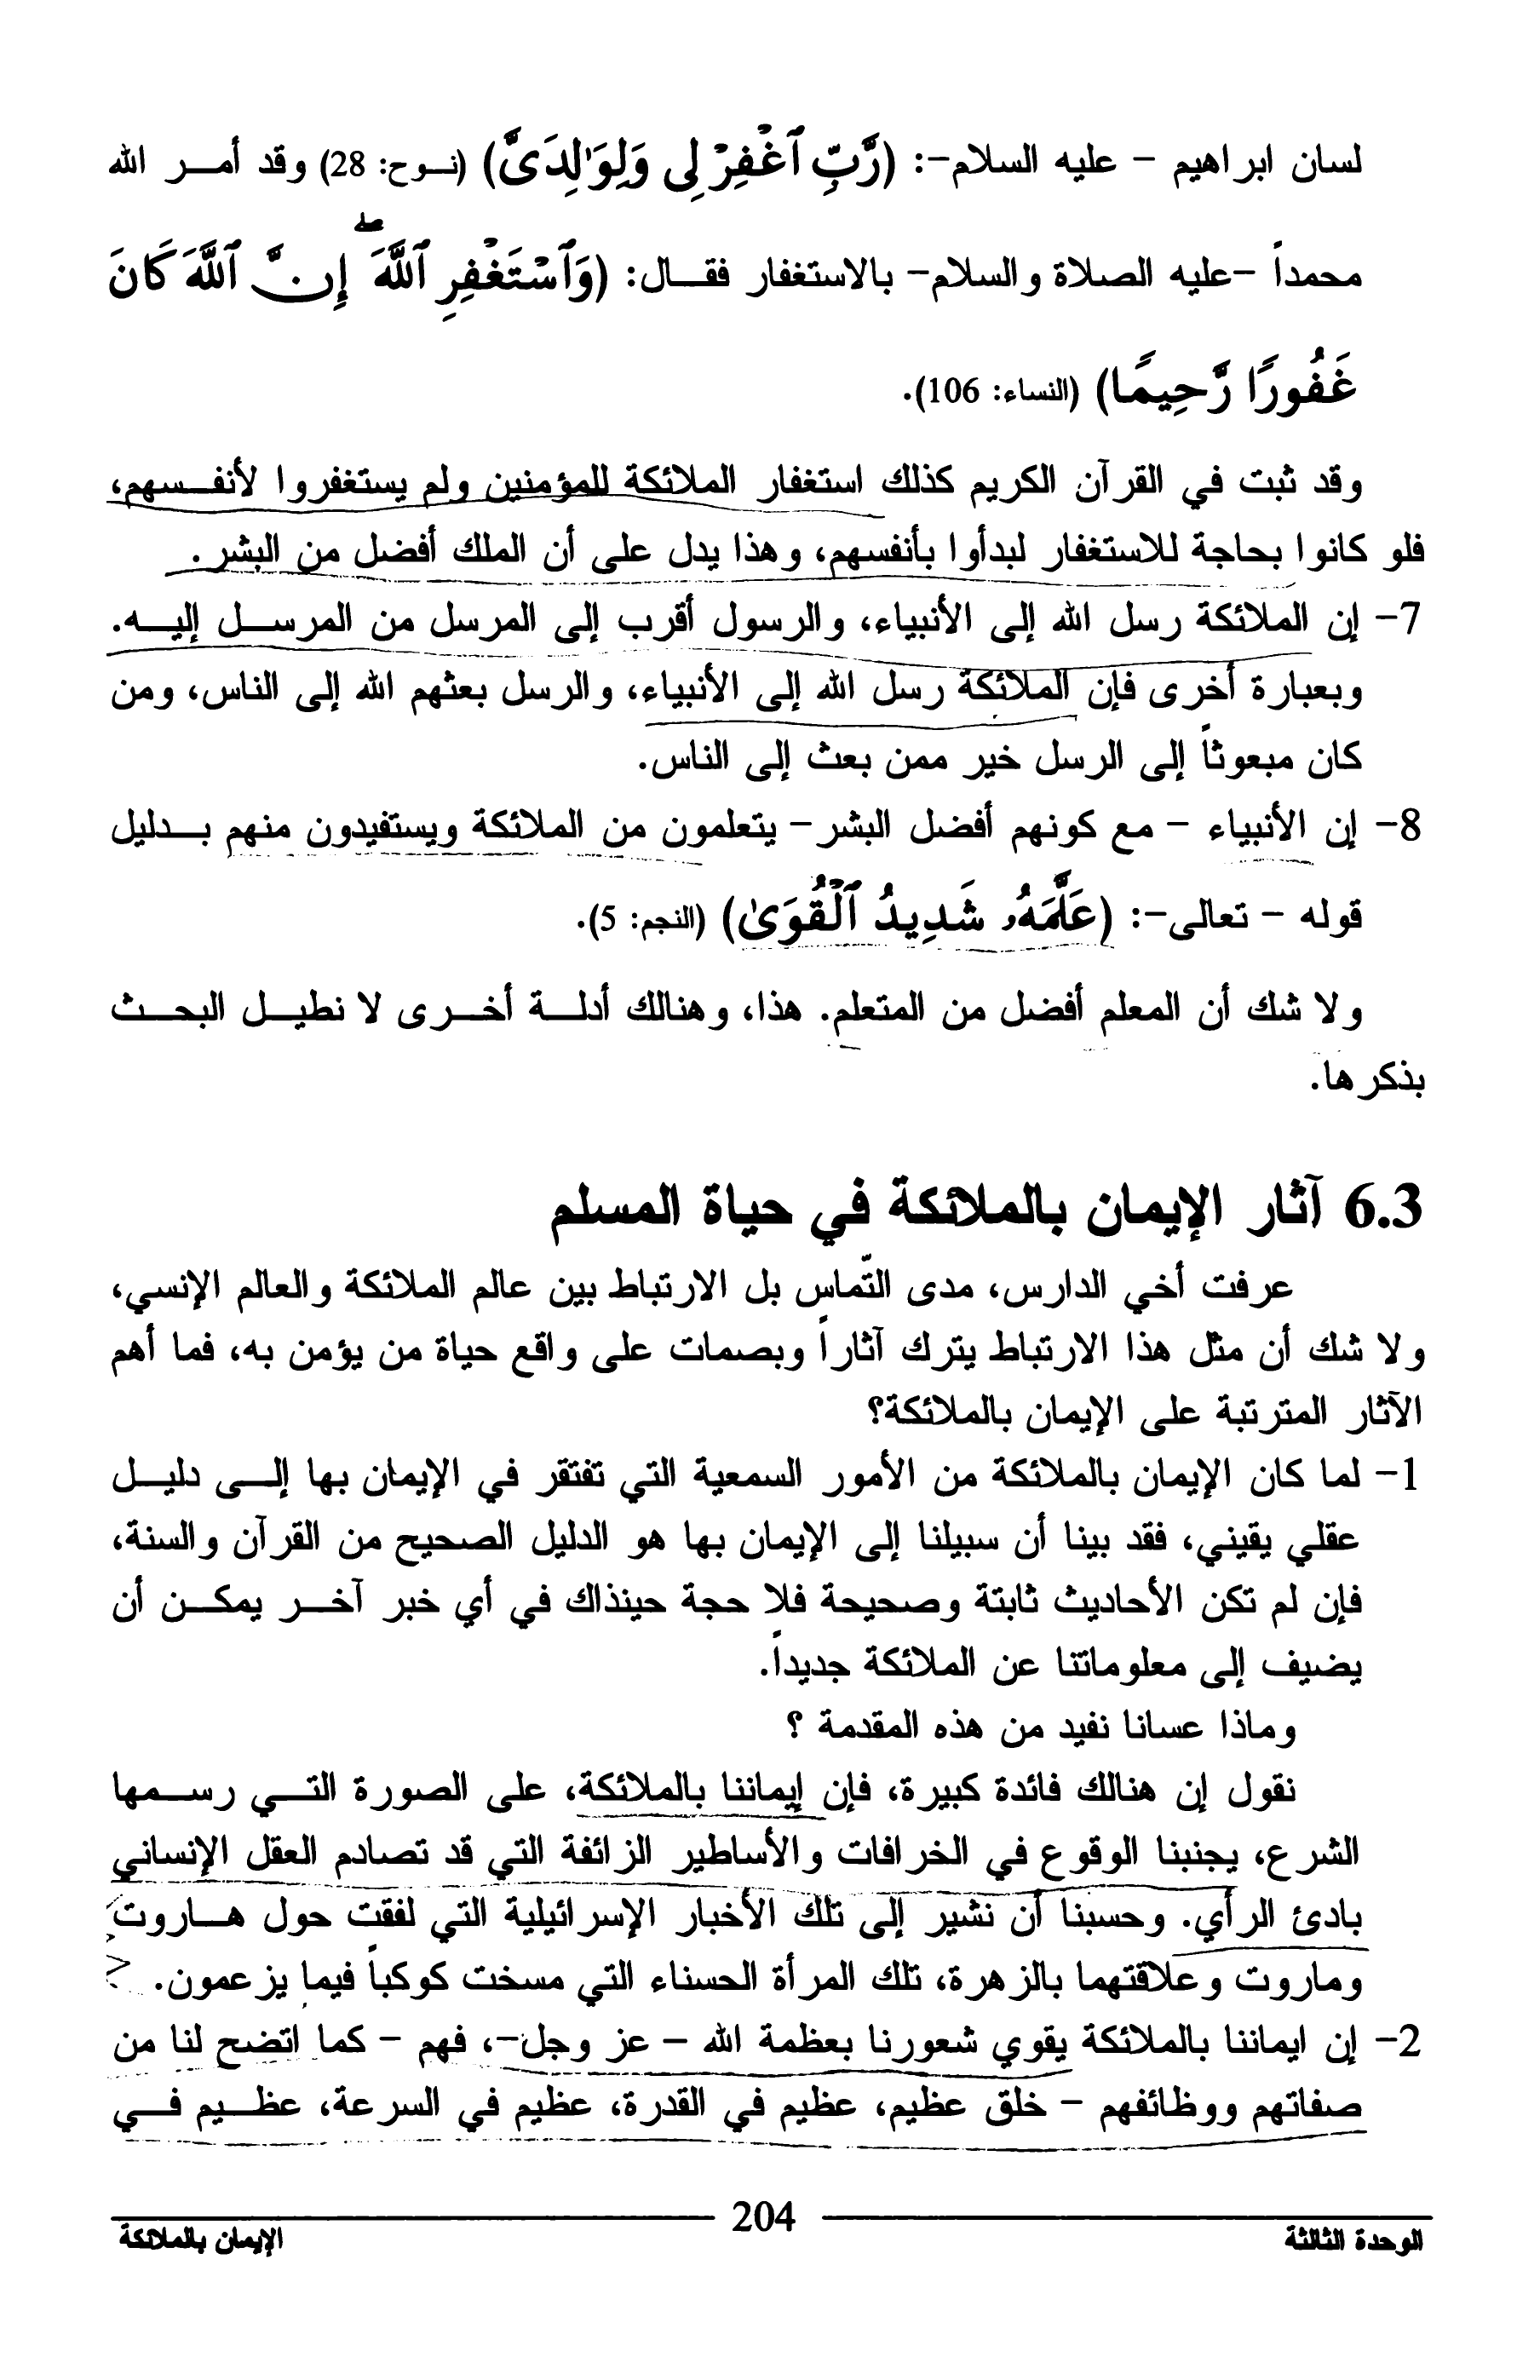 لسان ابراهيم – عليه السلام–: (رَّبِّ ٱغْفِرْ لِى وَلِوَٰلِدَىَّ) (نوح: 28) وقد أمر الله
محمداً –عليه الصلاة والسلام– بالاستغفار فقال: (وَٱسْتَغْفِرِ ٱللَّهَ ۖ إِنَّ ٱللَّهَ كَانَ
غَفُورًا رَّحِيمًا) (النساء: 106).
وقد ثبت في القرآن الكريم كذلك استغفار الملائكة للمؤمنين ولم يستغفروا لأنفسهم،
فلو كانوا بحاجة للاستغفار لبدأوا بأنفسهم، وهذا يدل على أن الملك أفضل من البشر.
7– إن الملائكة رسل الله إلى الأنبياء، والرسول أقرب إلى المرسل من المرسل إليه.
وبعبارة أخرى فإن الملائكة رسل الله إلى الأنبياء، والرسل بعثهم الله إلى الناس، ومن
كان مبعوثاً إلى الرسل خير ممن بعث إلى الناس.
8– إن الأنبياء – مع كونهم أفضل البشر– يتعلمون من الملائكة ويستفيدون منهم بدليل
قوله – تعالى–: (عَلَّمَهُۥ شَدِيدُ ٱلْقُوَىٰ) (النجم: 5).
ولا شك أن المعلم أفضل من المتعلم. هذا، وهنالك أدلة أخرى لا نطيل البحث
بذكرها.
6.3 آثار الإيمان بالملائكة في حياة المسلم
عرفت أخي الدارس، مدى التّماس بل الارتباط بين عالم الملائكة والعالم الإنسي،
ولا شك أن مثل هذا الارتباط يترك آثاراً وبصمات على واقع حياة من يؤمن به، فما أهم
الآثار المترتبة على الإيمان بالملائكة؟
1– لما كان الإيمان بالملائكة من الأمور السمعية التي تفتقر في الإيمان بها إلى دليل
عقلي يقيني، فقد بينا أن سبيلنا إلى الإيمان بها هو الدليل الصحيح من القرآن والسنة،
فإن لم تكن الأحاديث ثابتة وصحيحة فلا حجة حينذاك في أي خبر آخر يمكن أن
يضيف إلى معلوماتنا عن الملائكة جديداً.
وماذا عسانا نفيد من هذه المقدمة ؟
نقول إن هنالك فائدة كبيرة، فإن إيماننا بالملائكة، على الصورة التي رسمها
الشرع، يجنبنا الوقوع في الخرافات والأساطير الزائفة التي قد تصادم العقل الإنساني
بادئ الرأي. وحسبنا أن نشير إلى تلك الأخبار الإسرائيلية التي لفقت حول هاروت
وماروت وعلاقتهما بالزهرة، تلك المرأة الحسناء التي مسخت كوكباً فيما يزعمون.
2– إن ايماننا بالملائكة يقوي شعورنا بعظمة الله – عز وجل–، فهم – كما اتضح لنا من
صفاتهم ووظائفهم – خلق عظيم، عظيم في القدرة، عظيم في السرعة، عظيم في
204
الوحدة الثالثة
الإيمان بالملائكة